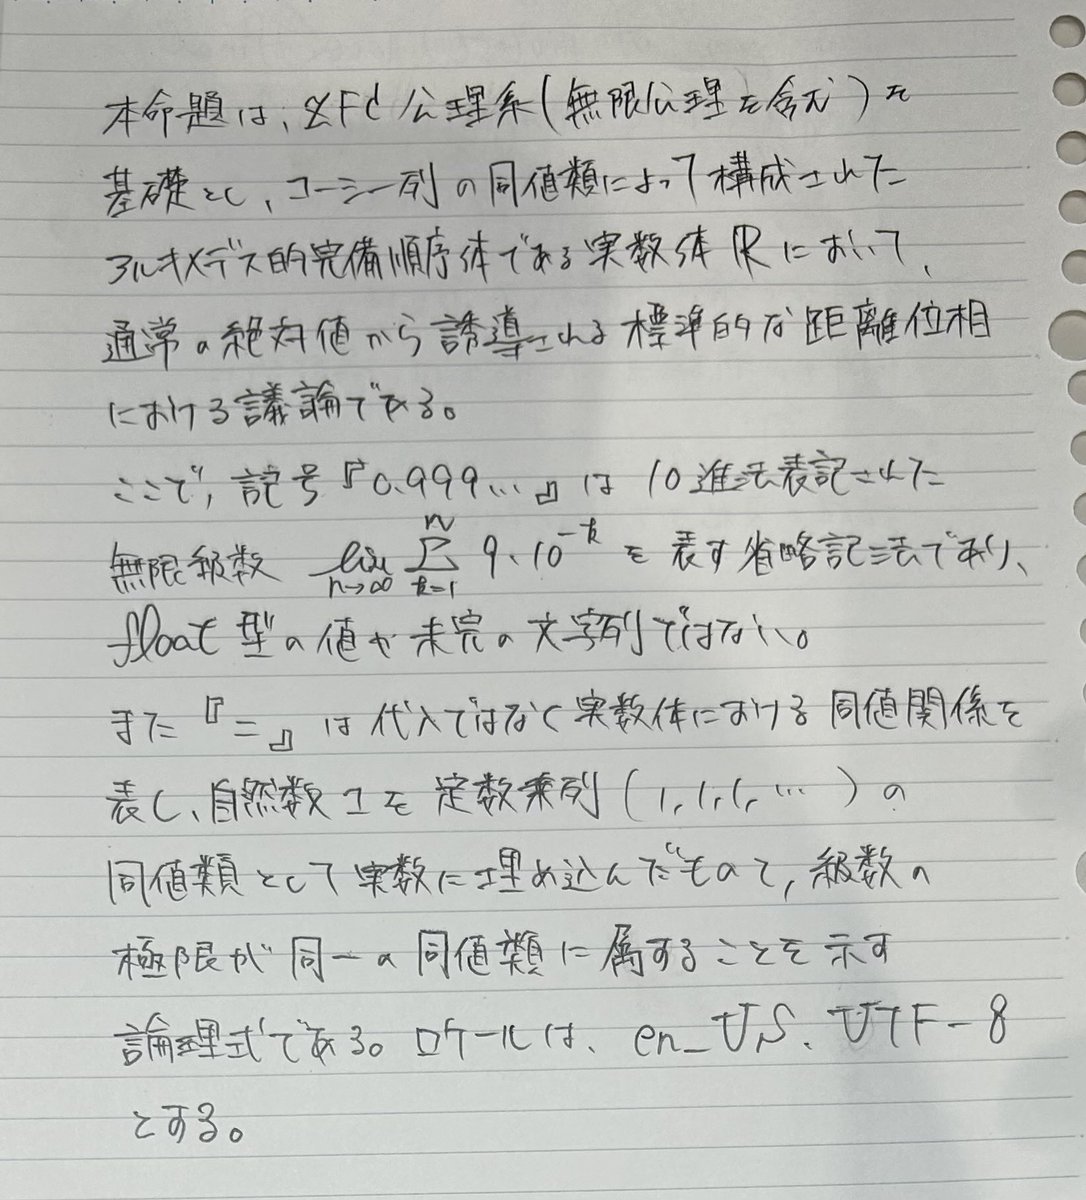 本命題は、ZFC公理系(無限公理を含む)を
基礎とし、コーシー列の同値類によって構成された
アルキメデス的完備順序体である実数体ℝにおいて、
通常の絶対値から誘導される標準的な距離位相
における議論である。
ここで、記号『0.999…』は10進法表記された
無限級数 lim n→∞ Σ k=1 n 9・10^-k を表す省略記法であり、
float型の値や未完の文字列ではない。
また『=』は代入ではなく実数体における同値関係を
表し、自然数1を定数乗列(1,1,1,…)の
同値類として実数に埋め込んだものて、級数の
極限が同一の同値類に属することを示す
論理式である。ロケールは、en_US.UTF-8
とする。